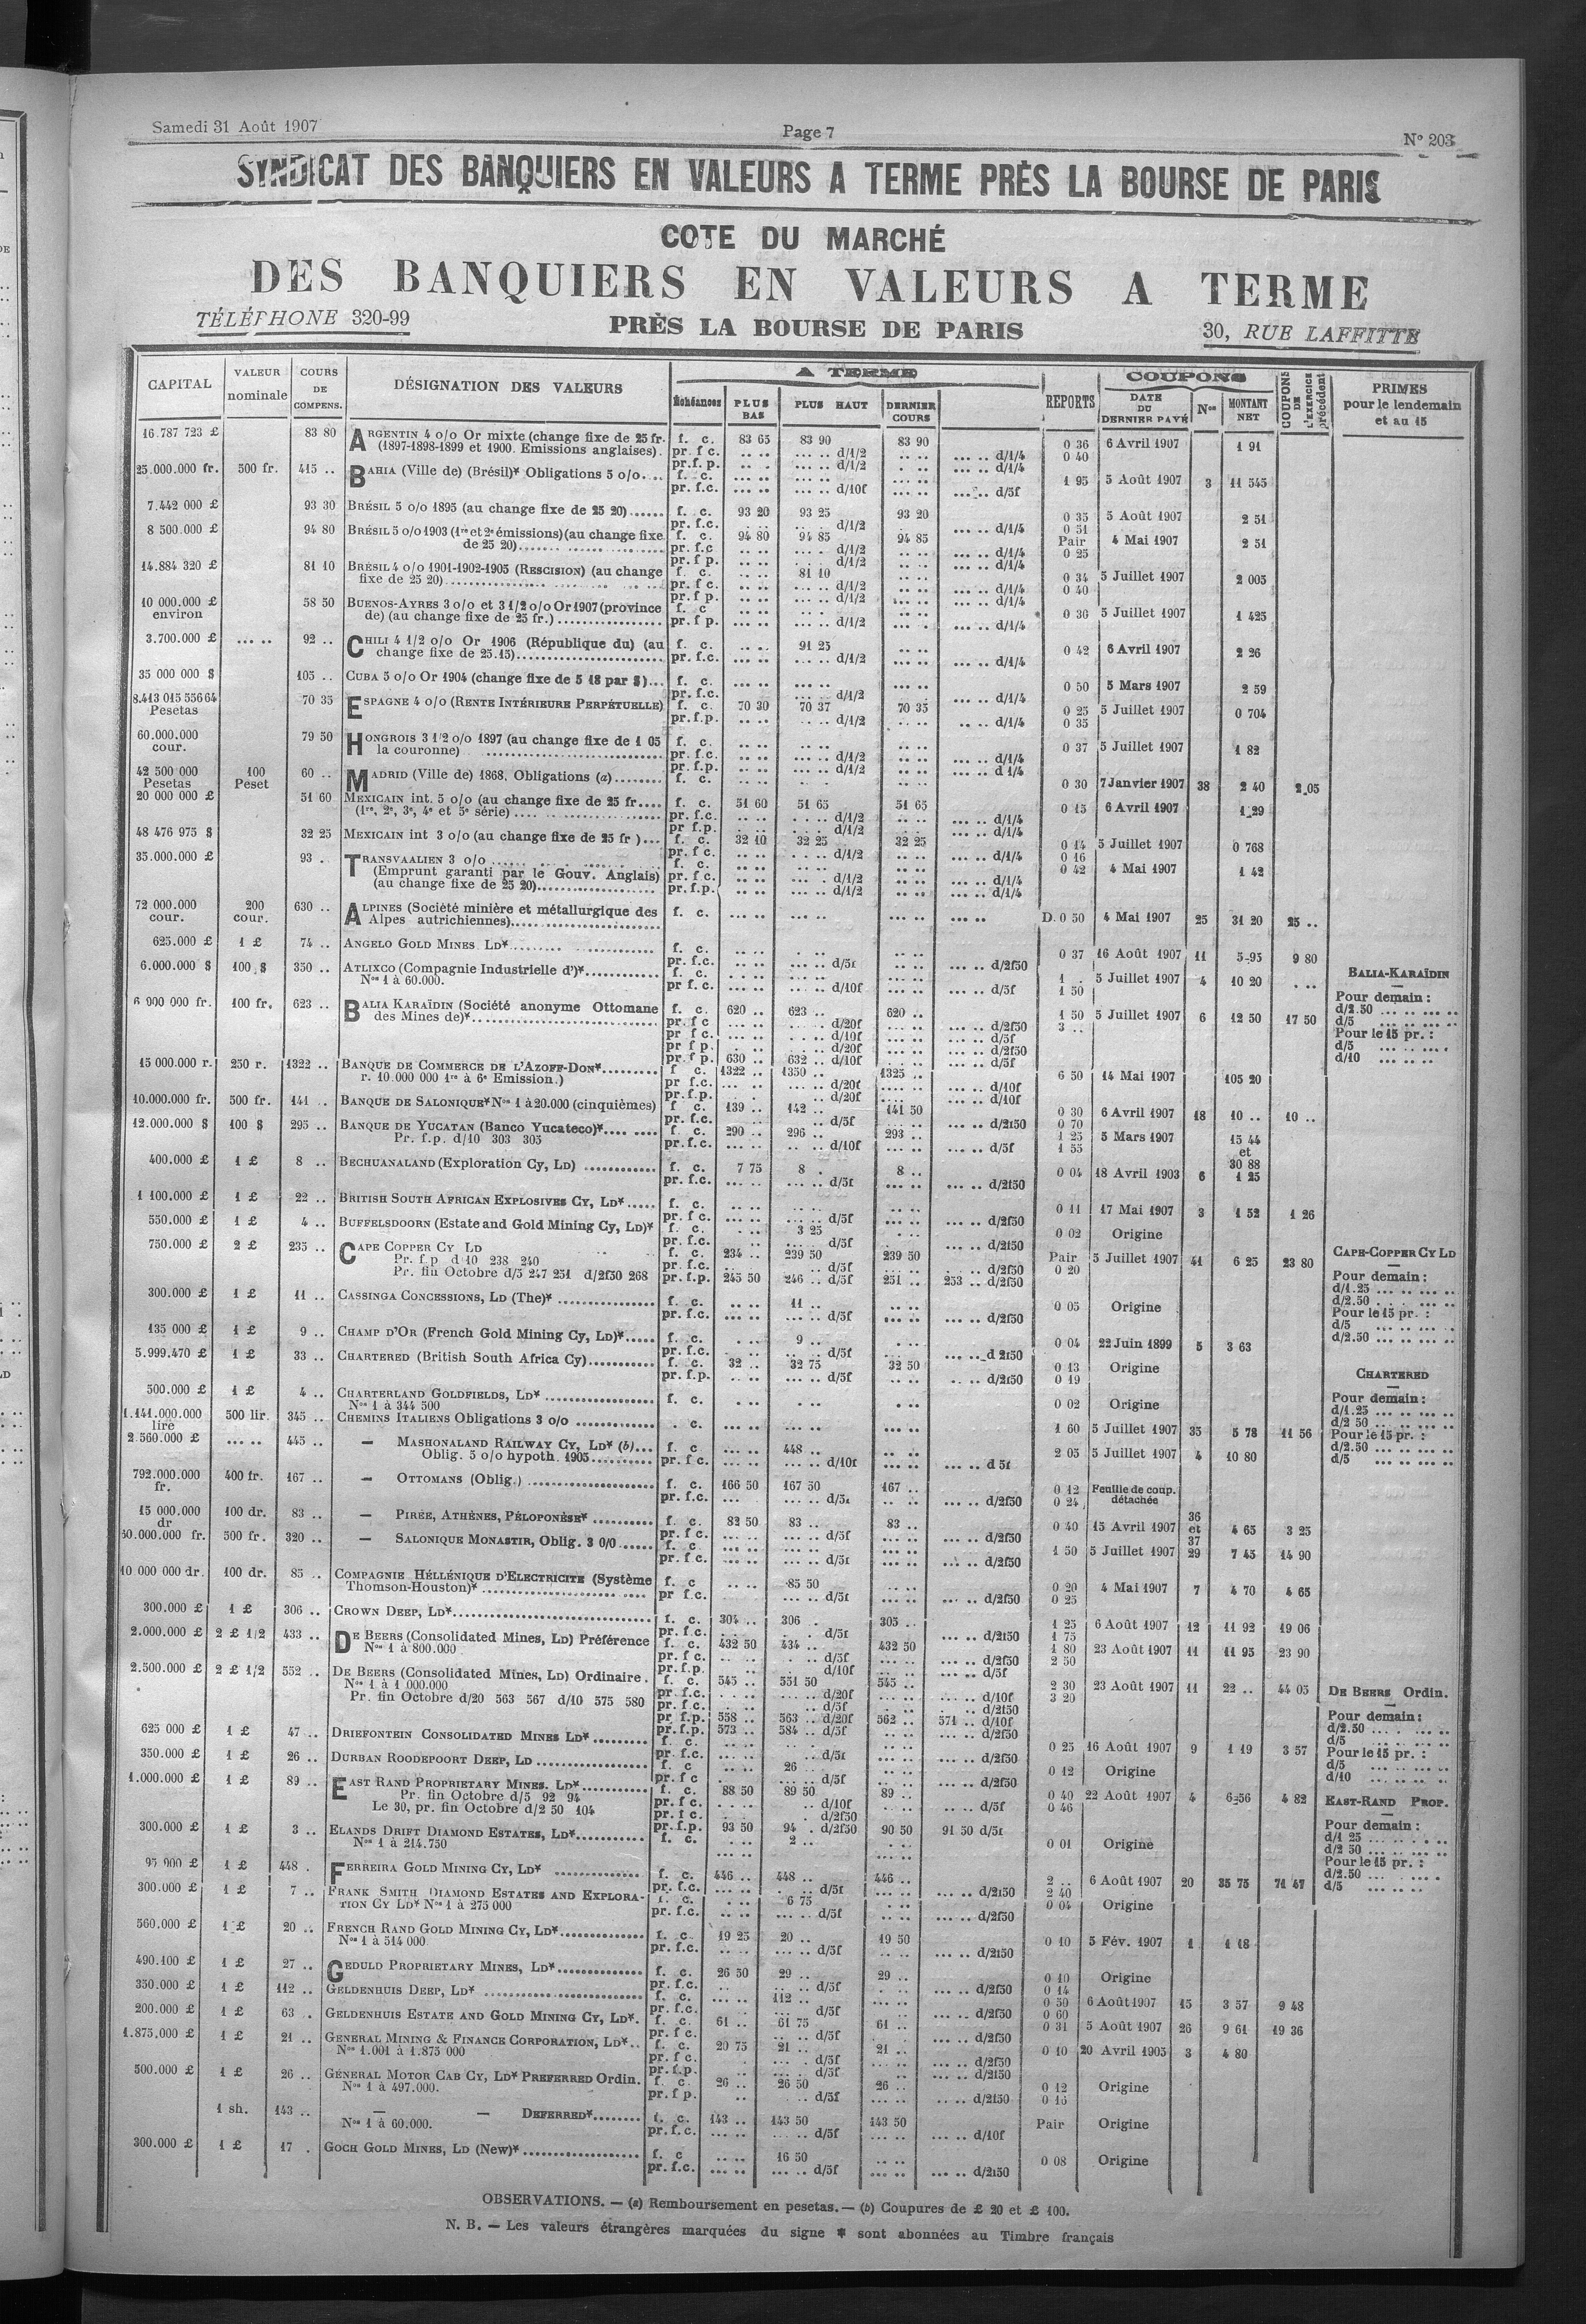 Samedi 31 Août 1907
Page 7
N° 203
SYNDICAT DES BANQUIERS EN VALEURS A TERME PRÈS LA BOURSE DE PARIS
COTE DU MARCHÉ
DES BANQUIERS EN VALEURS A TERME
TÉLÉPHONE 320-99
PRÈS LA BOURSE DE PARIS
30, RUE LAFFITTE
CAPITAL VALEUR nominale COURS DE COMPENS. DÉSIGNATION DES VALEURS A TERME Échéances PLUS BAS PLUS HAUT DERNIER COURS REPORTS COUPONS DATE DU DERNIER PAYÉ Nos MONTANT NET COUPONS DE L'EXERCICE précédent PRIMES pour le lendemain et au 15
16.787 723 £ 83 80 ARGENTIN 4 o/o Or mixte (change fixe de 25 fr. f. c. 83 65 83 90 83 90 0 36 6 Avril 1907 1 91
(1897-1898-1899 et 1900. Emissions anglaises). pr. f c. d/1/2 d/1/4 0 40
pr. f. p. d/1/2 d/1/4
25.000.000 fr. 500 fr. 415 .. BAHIA (Ville de) (Brésil)* Obligations 5 o/o... f. c. 1 95 5 Août 1907 3 11 545
pr. f.c. d/10f d/5f
7.442 000 £ 93 30 BRÉSIL 5 o/o 1895 (au change fixe de 25 20)...... f. c. 93 20 93 25 93 20 0 35 5 Août 1907 2 51
pr. f.c. d/1/2 d/1/4 0 51
8 500.000 £ 94 80 BRÉSIL 5 o/o 1903 (1re et 2e émissions) (au change fixe f. c. 94 80 94 85 94 85 Pair 4 Mai 1907 2 51
de 25 20) pr. f.c d/1/2 d/1/4 0 25
pr. f p. d/1/2 d/1/4
14.884 320 £ 81 10 BRÉSIL 4 o/o 1901-1902-1905 (RESCISION) (au change f. c. 81 10 0 34 5 Juillet 1907 2 005
fixe de 25 20) pr. f c. d/1/2 d/1/4 0 40
pr. f p. d/1/2 d/1/4
10 000.000 £ environ 58 50 BUENOS-AYRES 3 o/o et 3 1/2 o/o Or 1907 (province f. c 0 36 5 Juillet 1907 1 425
de) (au change fixe de 25 fr.) pr. f p. d/1/2 d/1/4
3.700.000 £ 92 .. CHILI 4 1/2 o/o Or 1906 (République du) (au f. c. 91 25 0 42 6 Avril 1907 2 26
change fixe de 25.15) pr. f.c. d/1/2 d/1/4
35 000 000 $ 105 .. CUBA 5 o/o Or 1904 (change fixe de 5 18 par $)... f. c. 0 50 5 Mars 1907 2 59
pr. f.c. d/1/2 d/1/4
8.413 015 556 64 Pesetas 70 35 ESPAGNE 4 o/o (RENTE INTÉRIEURE PERPÉTUELLE) f. c. 70 30 70 37 70 35 0 25 5 Juillet 1907 0 704
pr. f.p. d/1/2 d/1/4 0 35
60.000.000 cour. 79 50 HONGROIS 3 1/2 o/o 1897 (au change fixe de 1 05 f. c. 0 37 5 Juillet 1907 1 82
la couronne) pr. f.c. d/1/2 d/1/4
pr. f.p. d/1/2 d 1/4
42 500 000 Pesetas 100 Peset 60 .. MADRID (Ville de) 1868. Obligations (a)........ f. c. 0 30 7 Janvier 1907 38 2 40 2 05
20 000 000 £ 51 60 MEXICAIN int. 5 o/o (au change fixe de 25 fr.... f. c. 51 60 51 65 51 65 0 15 6 Avril 1907 1 29
(1re, 2e, 3e, 4e et 5e série) pr. f.c. d/1/2 d/1/4
pr f.p. d/1/2 d/1/4
48 476 975 $ 32 25 MEXICAIN int 3 o/o (au change fixe de 25 fr )... f. c. 32 10 32 25 32 25 0 14 5 Juillet 1907 0 768
pr. f c. d/1/2 d/1/4 0 16
35.000.000 £ 93 . TRANSVAALIEN 3 o/o f. c. 0 42 4 Mai 1907 1 42
(Emprunt garanti par le Gouv. Anglais) pr. f.c. d/1/2 d/1/4
(au change fixe de 25 20) pr. f.p. d/1/2 d/1/4
72 000.000 cour. 200 cour. 630 .. ALPINES (Société minière et métallurgique des f. c. D. 0 50 4 Mai 1907 25 31 20 25 ..
Alpes autrichiennes)
625.000 £ 1 £ 74 .. ANGELO GOLD MINES LD* f. c. 0 37 16 Août 1907 11 5-95 9 80
pr. f.c. d/5f d/2f50
6.000.000 $ 100 $ 350 .. ATLIXCO (Compagnie Industrielle d')* f. c. 1 . 5 Juillet 1907 4 10 20
Nos 1 à 60.000. pr f.c. d/10f d/5f 1 50
6 000 000 fr. 100 fr. 623 .. BALIA KARAÏDIN (Société anonyme Ottomane f. c. 620 .. 623 .. 620 .. 1 50 5 Juillet 1907 6 12 50 17 50
des Mines de)* pr. f c d/20f d/2f50 3 ..
pr f c. d/10f d/5f
pr f p. d/20f d/2f50
pr. f p. 630 .. 632 .. d/10f d/5f
15 000.000 r. 250 r. 1322 .. BANQUE DE COMMERCE DE L'AZOFF-DON* f c. 1322 .. 1350 .. 1325 .. 6 50 14 Mai 1907 105 20
r. 10.000 000 1re à 6e Emission.) pr f.c. d/20f d/10f
pr. f.p. d/20f d/10f
10.000.000 fr. 500 fr. 141 .. BANQUE DE SALONIQUE* Nos 1 à 20.000 (cinquièmes) f c. 139 .. 142 .. 141 50 0 30 6 Avril 1907 18 10 .. 10 ..
pr. f.c. d/5f d/2f50 0 70
12.000.000 $ 100 $ 295 .. BANQUE DE YUCATAN (Banco Yucateco)* f. c. 290 .. 296 .. 293 .. 1 25 5 Mars 1907 15 44 et 30 88
Pr. f.p. d/10 303 305 pr. f.c. d/10f d/5f 1 55
400.000 £ 1 £ 8 .. BECHUANALAND (Exploration Cy, LD) f. c. 7 75 8 . 8 .. 0 04 18 Avril 1903 6 1 25
pr. f.c. d/5f d/2f50
1 100.000 £ 1 £ 22 .. BRITISH SOUTH AFRICAN EXPLOSIVES CY, LD* f. c. 0 11 17 Mai 1907 3 1 52 1 26
pr. f c. d/5f d/2f50
550.000 £ 1 £ 4 .. BUFFELSDOORN (Estate and Gold Mining Cy, LD)* f. c. 3 25 0 02 Origine
pr. f.c. d/5f d/2f50
750.000 £ 2 £ 235 .. CAPE COPPER CY LD f. c. 234 .. 239 50 239 50 Pair 5 Juillet 1907 41 6 25 23 80
Pr. f.p d 10 238 240 pr. f.c. d/5f d/2f50 0 20
Pr. fin Octobre d/5 247 251 d/2f50 268 pr. f.p. 245 50 246 .. d/5f 251 .. 253 .. d/2f50
300.000 £ 1 £ 11 .. CASSINGA CONCESSIONS, LD (The)* f. c. 11 .. 0 05 Origine
pr. f.c. d/5f d/2f50
135 000 £ 1 £ 9 .. CHAMP D'OR (French Gold Mining Cy, LD)* f. c. 9 .. 0 04 22 Juin 1899 5 3 63
pr. f.c. d/5f d 2f50
5.999.470 £ 1 £ 33 .. CHARTERED (British South Africa Cy) f. c. 32 .. 32 75 32 50 0 13 Origine
pr. f.p. d/5f d/2f50 0 19
500.000 £ 1 £ 4 .. CHARTERLAND GOLDFIELDS, LD* f. c. 0 02 Origine
Nos 1 à 344 500
1.141.000.000 lire 500 lir. 345 .. CHEMINS ITALIENS Obligations 3 o/o . c. 1 60 5 Juillet 1907 35 5 78 11 56
2.560.000 £ 445 .. — MASHONALAND RAILWAY CY, LD* (b)... f. c 448 .. 2 05 5 Juillet 1907 4 10 80
Oblig. 5 o/o hypoth. 1905 pr. f c. d/10f d 5f
792.000.000 fr. 400 fr. 167 .. — OTTOMANS (Oblig.) f. c. 166 50 167 50 167 .. 0 12 Feuille de coup. détachée
pr. f.c. d/5f d/2f50 0 24
15 000.000 dr 100 dr. 83 .. — PIRÉE, ATHÈNES, PÉLOPONÈSE* f. c. 82 50 83 .. 83 .. 0 40 15 Avril 1907 36 et 37 4 65 3 25
pr. f c. d/5f d/2f50
500 fr. 320 .. — SALONIQUE MONASTIR, Oblig. 3 0/0 f. c. 1 50 5 Juillet 1907 29 7 45 14 90
pr. f.c. d/5f d/2f50
10 000 000 dr. 100 dr. 85 .. COMPAGNIE HÉLLÉNIQUE D'ELECTRICITE (Système f. c 85 50 0 20 4 Mai 1907 7 4 70 4 65
Thomson-Houston)* pr f.c. d/5f d/2f50 0 25
300.000 £ 1 £ 306 .. CROWN DEEP, LD* f. c. 304 .. 306 . 305 .. 1 25 6 Août 1907 12 11 92 19 06
pr. f.c. d/5f d/2f50 1 75
2.000.000 £ 2 £ 1/2 433 .. DE BEERS (Consolidated Mines, LD) Préférence f. c. 432 50 434 .. 432 50 1 80 23 Août 1907 11 11 95 23 90
Nos 1 à 800.000 pr. f c. d/5f d/2f50 2 50
pr. f.p. d/10f d/5f
2.500.000 £ 2 £ 1/2 552 .. DE BEERS (Consolidated Mines, LD) Ordinaire. f. c. 545 .. 551 50 545 .. 2 30 23 Août 1907 11 22 .. 44 05
Nos 1 à 1 000.000 pr. f.c. d/20f d/10f 3 20
Pr. fin Octobre d/20 563 567 d/10 575 580 pr. f c. d/5f d/2f50
pr f.p. 558 .. 563 .. d/20f 562 .. 571 .. d/10f
pr. f.p. 573 .. 584 .. d/5f d/2f50
625 000 £ 1 £ 47 .. DRIEFONTEIN CONSOLIDATED MINES LD* f. c. 0 25 16 Août 1907 9 1 19 3 57
pr. f.c. d/5f d/2f50
350.000 £ 1 £ 26 .. DURBAN ROODEPOORT DEEP, LD f. c 26 .. 0 12 Origine
pr. f c d/5f d/2f50
1.000.000 £ 1 £ 89 .. EAST RAND PROPRIETARY MINES. LD* f. c. 88 50 89 50 89 .. 0 40 22 Août 1907 4 6-56 4 82
Pr. fin Octobre d/5 92 94 pr. f c. d/10f d/5f 0 46
Le 30, pr. fin Octobre d/2 50 104 pr. f c. d/2f50
pr. f.p. 93 50 94 . d/2f50 90 50 91 50 d/5f
300.000 £ 1 £ 3 .. ELANDS DRIFT DIAMOND ESTATES, LD* f. c. 2 .. 0 01 Origine
Nos 1 à 214.750
1 £ 448 . FERREIRA GOLD MINING CY, LD* f. c. 446 .. 448 .. 446 .. 2 .. 6 Août 1907 20 35 75 71 47
pr. f.c. d/5f d/2f50 2 40
300.000 £ 1 £ 7 .. FRANK SMITH DIAMOND ESTATES AND EXPLORA- f. c. 6 75 0 04 Origine
TION CY LD* Nos 1 à 275 000 pr. f.c. d/5f d/2f50
560.000 £ 1 £ 20 .. FRENCH RAND GOLD MINING CY, LD* f. c. 19 25 20 .. 19 50 0 10 5 Fév. 1907 1 1 18
Nos 1 à 514 000 pr. f.c. d/5f d/2f50
490.100 £ 1 £ 27 .. GEDULD PROPRIETARY MINES, LD* f. c. 26 50 29 .. 29 .. 0 10 Origine
pr. f.c. d/5f d/2f50 0 14
350.000 £ 1 £ 112 .. GELDENHUIS DEEP, LD* f. c. 112 .. 0 50 6 Août 1907 15 3 57 9 48
pr. f.c. d/5f d/2f50 0 60
200.000 £ 1 £ 63 . GELDENHUIS ESTATE AND GOLD MINING CY, LD*. f. c. 61 .. 61 75 61 .. 0 31 5 Août 1907 26 9 61 19 36
pr. f c. d/5f d/2f50
1.875.000 £ 1 £ 21 .. GENERAL MINING & FINANCE CORPORATION, LD*.. f. c. 20 75 21 .. 21 .. 0 10 20 Avril 1905 3 4 80
Nos 1.001 à 1.875 000 pr. f c. d/5f d/2f50
pr. f.p. d/5f d/2f50
500.000 £ 1 £ 26 .. GÉNERAL MOTOR CAB CY, LD* PREFERRED Ordin. f. c. 26 .. 26 50 26 .. 0 12 Origine
Nos 1 à 497.000. pr. f p. d/5f d/2f50 0 15
1 sh. 143 .. — — DEFERRED* f. c. 143 .. 143 50 143 50 Pair Origine
Nos 1 à 60.000. pr. f.c. d/5f d/10f
300.000 £ 1 £ 17 . GOCH GOLD MINES, LD (New)* f. c 16 50 0 08 Origine
pr. f.c. d/5f d/2f50
BALIA-KARAÏDIN
Pour demain :
d/2.50
d/5
Pour le 15 pr. :
d/5
d/10
CAPE-COPPER CY LD
Pour demain :
d/1.25
d/2.50
Pour le 15 pr. :
d/5
d/2.50
CHARTERED
Pour demain :
d/1.25
d/2 50
Pour le 15 pr. :
d/2.50
d/5
DE BEERS Ordin.
Pour demain :
d/2.50
d/5
Pour le 15 pr. :
d/5
d/10
EAST-RAND PROP.
Pour demain :
d/1 25
d/2 50
Pour le 15 pr. :
d/2.50
d/5
OBSERVATIONS. — (a) Remboursement en pesetas. — (b) Coupures de £ 20 et £ 100.
N. B. — Les valeurs étrangères marquées du signe * sont abonnées au Timbre français